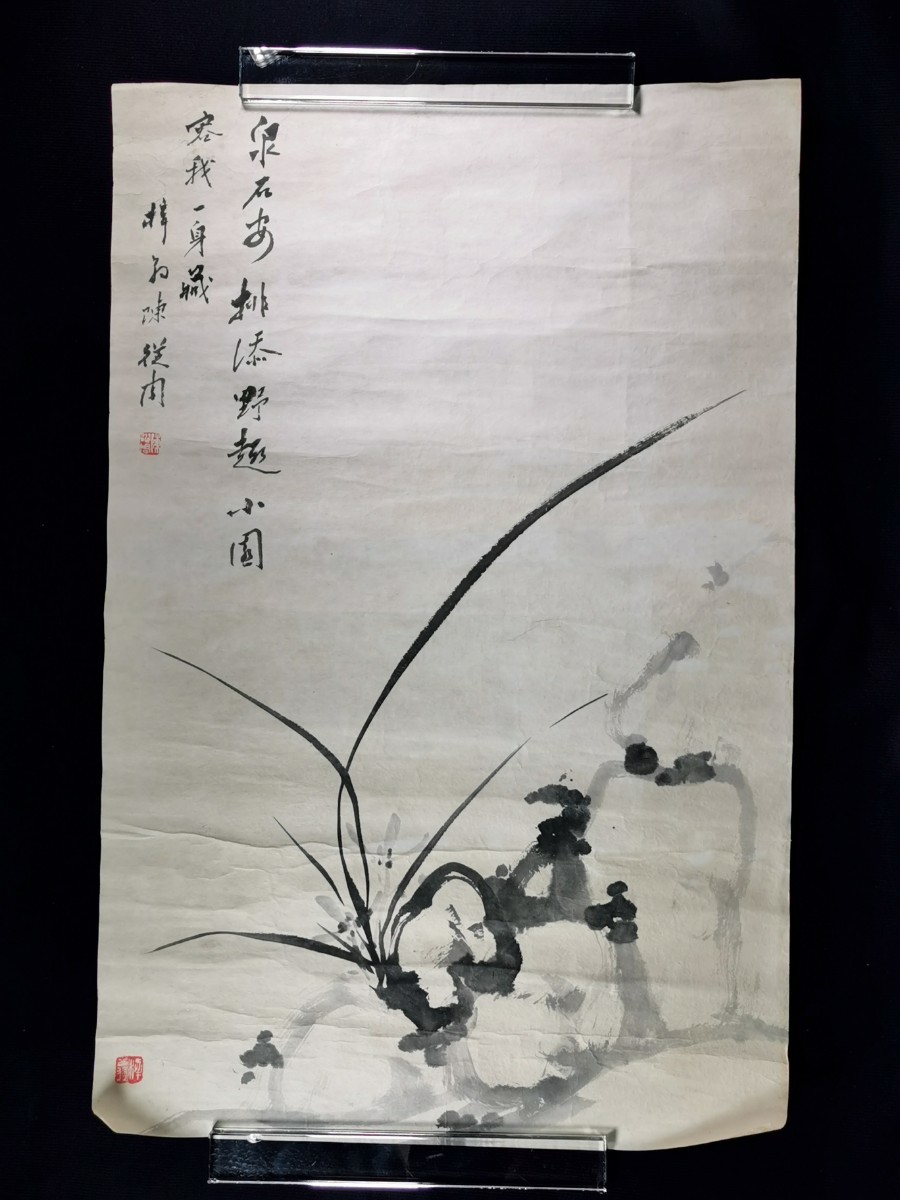 泉石安排添野趣小園
容我一身藏
梓翁陳從周